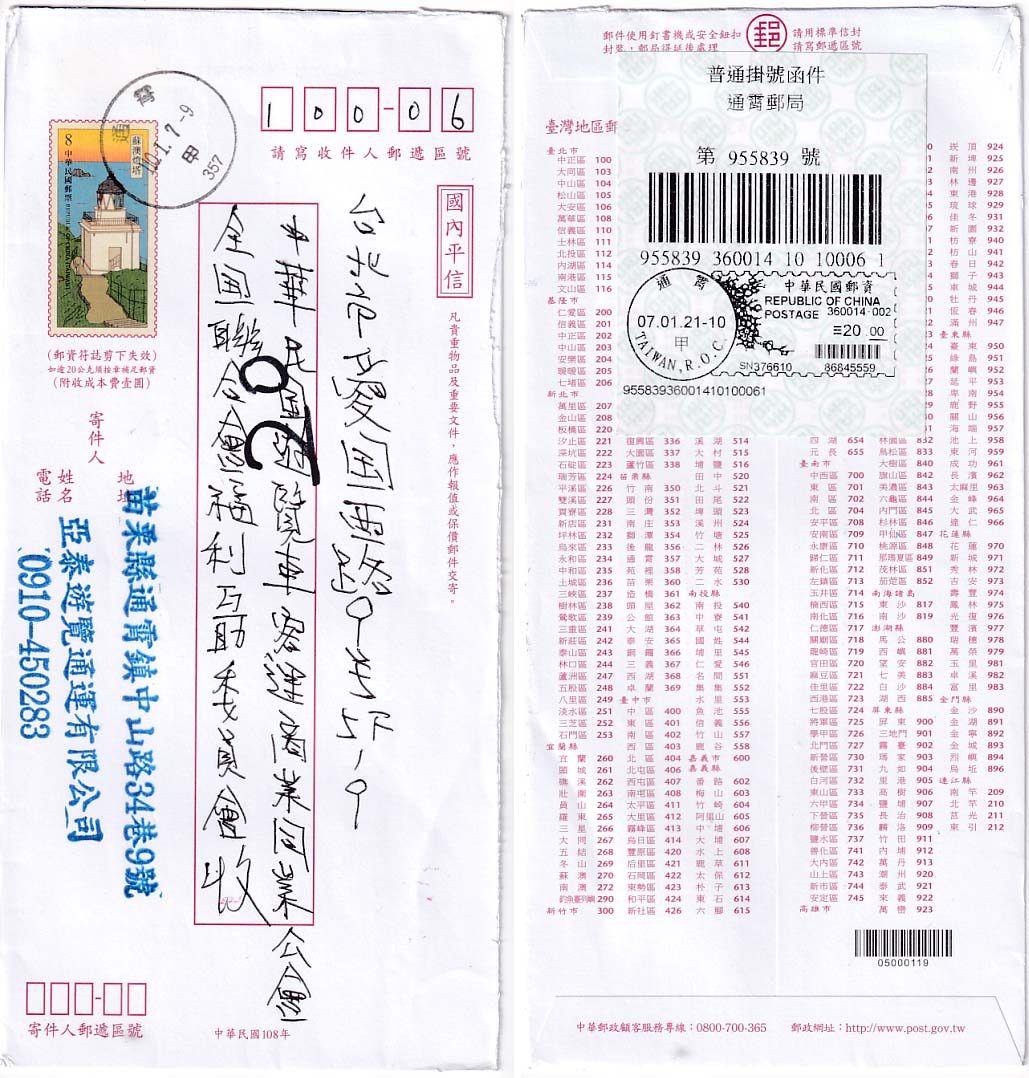 100-06
請寫收件人郵遞區號
國內平信
凡貴重物品及重要文件，應作報值或保價郵件交寄。
通霄
10.1.7-9
甲
357
8
中華民國郵票
REPUBLIC OF CHINA (TAIWAN)
蘇澳燈塔
(郵資符誌剪下失效)
如逾20公克須按章補足郵資
(附收成本費壹圓)
台北市愛國西路9號5F-9
中華民國遊覽車客運商業同業公會
全國聯合會福利互助委員會收
寄件人
地址
姓名
電話
苗栗縣通霄鎮中山路34巷9號
亞泰遊覽通運有限公司
0910-450283
寄件人郵遞區號
中華民國108年
郵件使用釘書機或安全鈕扣
封裝，郵局得延後處理
郵
請用標準信封
請寫郵遞區號
普通掛號函件
通霄郵局
第 955839 號
955839 360014 10 10006 1
通霄
07.01.21-10
甲
TAIWAN, R.O.C.
中華民國郵資
REPUBLIC OF CHINA
POSTAGE 360014-002
=20.00
SN376610 86845559
95583936001410100061
臺灣地區郵
臺北市
中正區 100
大同區 103
中山區 104
松山區 105
大安區 106
萬華區 108
信義區 110
士林區 111
北投區 112
內湖區 114
南港區 115
文山區 116
基隆市
仁愛區 200
信義區 201
中正區 202
中山區 203
安樂區 204
暖暖區 205
七堵區 206
新北市
萬里區 207
金山區 208
板橋區 220
汐止區 221
深坑區 222
石碇區 223
瑞芳區 224
平溪區 226
雙溪區 227
貢寮區 228
新店區 231
坪林區 232
烏來區 233
永和區 234
中和區 235
土城區 236
三峽區 237
樹林區 238
鶯歌區 239
三重區 241
新莊區 242
泰山區 243
林口區 244
蘆洲區 247
五股區 248
八里區 249
淡水區 251
三芝區 252
石門區 253
宜蘭縣
宜蘭 260
頭城 261
礁溪 262
壯圍 263
員山 264
羅東 265
三星 266
大同 267
五結 268
冬山 269
蘇澳 270
南澳 272
釣魚臺列嶼 290
新竹市 300
復興區 336
大園區 337
蘆竹區 338
苗栗縣
竹南 350
頭份 351
三灣 352
南庄 353
獅潭 354
後龍 356
通霄 357
苑裡 358
苗栗 360
造橋 361
頭屋 362
公館 363
大湖 364
泰安 365
銅鑼 366
三義 367
西湖 368
卓蘭 369
臺中市
中區 400
東區 401
南區 402
西區 403
北區 404
北屯區 406
西屯區 407
南屯區 408
太平區 411
大里區 412
霧峰區 413
烏日區 414
豐原區 420
后里區 421
石岡區 422
東勢區 423
和平區 424
新社區 426
溪湖 514
大村 515
埔鹽 516
田中 520
北斗 521
田尾 522
埤頭 523
溪州 524
竹塘 525
二林 526
大城 527
芳苑 528
二水 530
南投縣
南投 540
中寮 541
草屯 542
國姓 544
埔里 545
仁愛 546
名間 551
集集 552
水里 553
魚池 555
信義 556
竹山 557
鹿谷 558
嘉義市 600
嘉義縣
番路 602
梅山 603
竹崎 604
阿里山 605
中埔 606
大埔 607
水上 608
鹿草 611
太保 612
朴子 613
東石 614
六腳 615
四湖 654
元長 655
臺南市
中西區 700
東區 701
南區 702
北區 704
安平區 708
安南區 709
永康區 710
歸仁區 711
新化區 712
左鎮區 713
玉井區 714
楠西區 715
南化區 716
仁德區 717
關廟區 718
龍崎區 719
官田區 720
麻豆區 721
佳里區 722
西港區 723
七股區 724
將軍區 725
學甲區 726
北門區 727
新營區 730
後壁區 731
白河區 732
東山區 733
六甲區 734
下營區 735
柳營區 736
鹽水區 737
善化區 741
大內區 742
山上區 743
新市區 744
安定區 745
高雄市
林園區 832
鳥松區 833
大樹區 840
旗山區 842
美濃區 843
六龜區 844
內門區 845
杉林區 846
甲仙區 847
桃源區 848
那瑪夏區 849
茂林區 851
茄萣區 852
南海諸島
東沙 817
南沙 819
澎湖縣
馬公 880
西嶼 881
望安 882
七美 883
白沙 884
湖西 885
屏東縣
屏東 900
三地門 901
霧臺 902
瑪家 903
九如 904
里港 905
高樹 906
鹽埔 907
長治 908
麟洛 909
竹田 911
內埔 912
萬丹 913
潮州 920
泰武 921
來義 922
萬巒 923
崁頂 924
新埤 925
南州 926
林邊 927
東港 928
琉球 929
佳冬 931
新園 932
枋寮 940
枋山 941
春日 942
獅子 943
車城 944
牡丹 945
恆春 946
滿州 947
臺東縣
臺東 950
綠島 951
蘭嶼 952
延平 953
卑南 954
鹿野 955
關山 956
海端 957
池上 958
東河 959
成功 961
長濱 962
太麻里 963
金峰 964
大武 965
達仁 966
花蓮縣
花蓮 970
新城 971
秀林 972
吉安 973
壽豐 974
鳳林 975
光復 976
豐濱 977
瑞穗 978
萬榮 979
玉里 981
卓溪 982
富里 983
金門縣
金沙 890
金湖 891
金寧 892
金城 893
烈嶼 894
烏坵 896
連江縣
南竿 209
北竿 210
莒光 211
東引 212
05000119
中華郵政顧客服務專線：0800-700-365 郵政網址：http://www.post.gov.tw